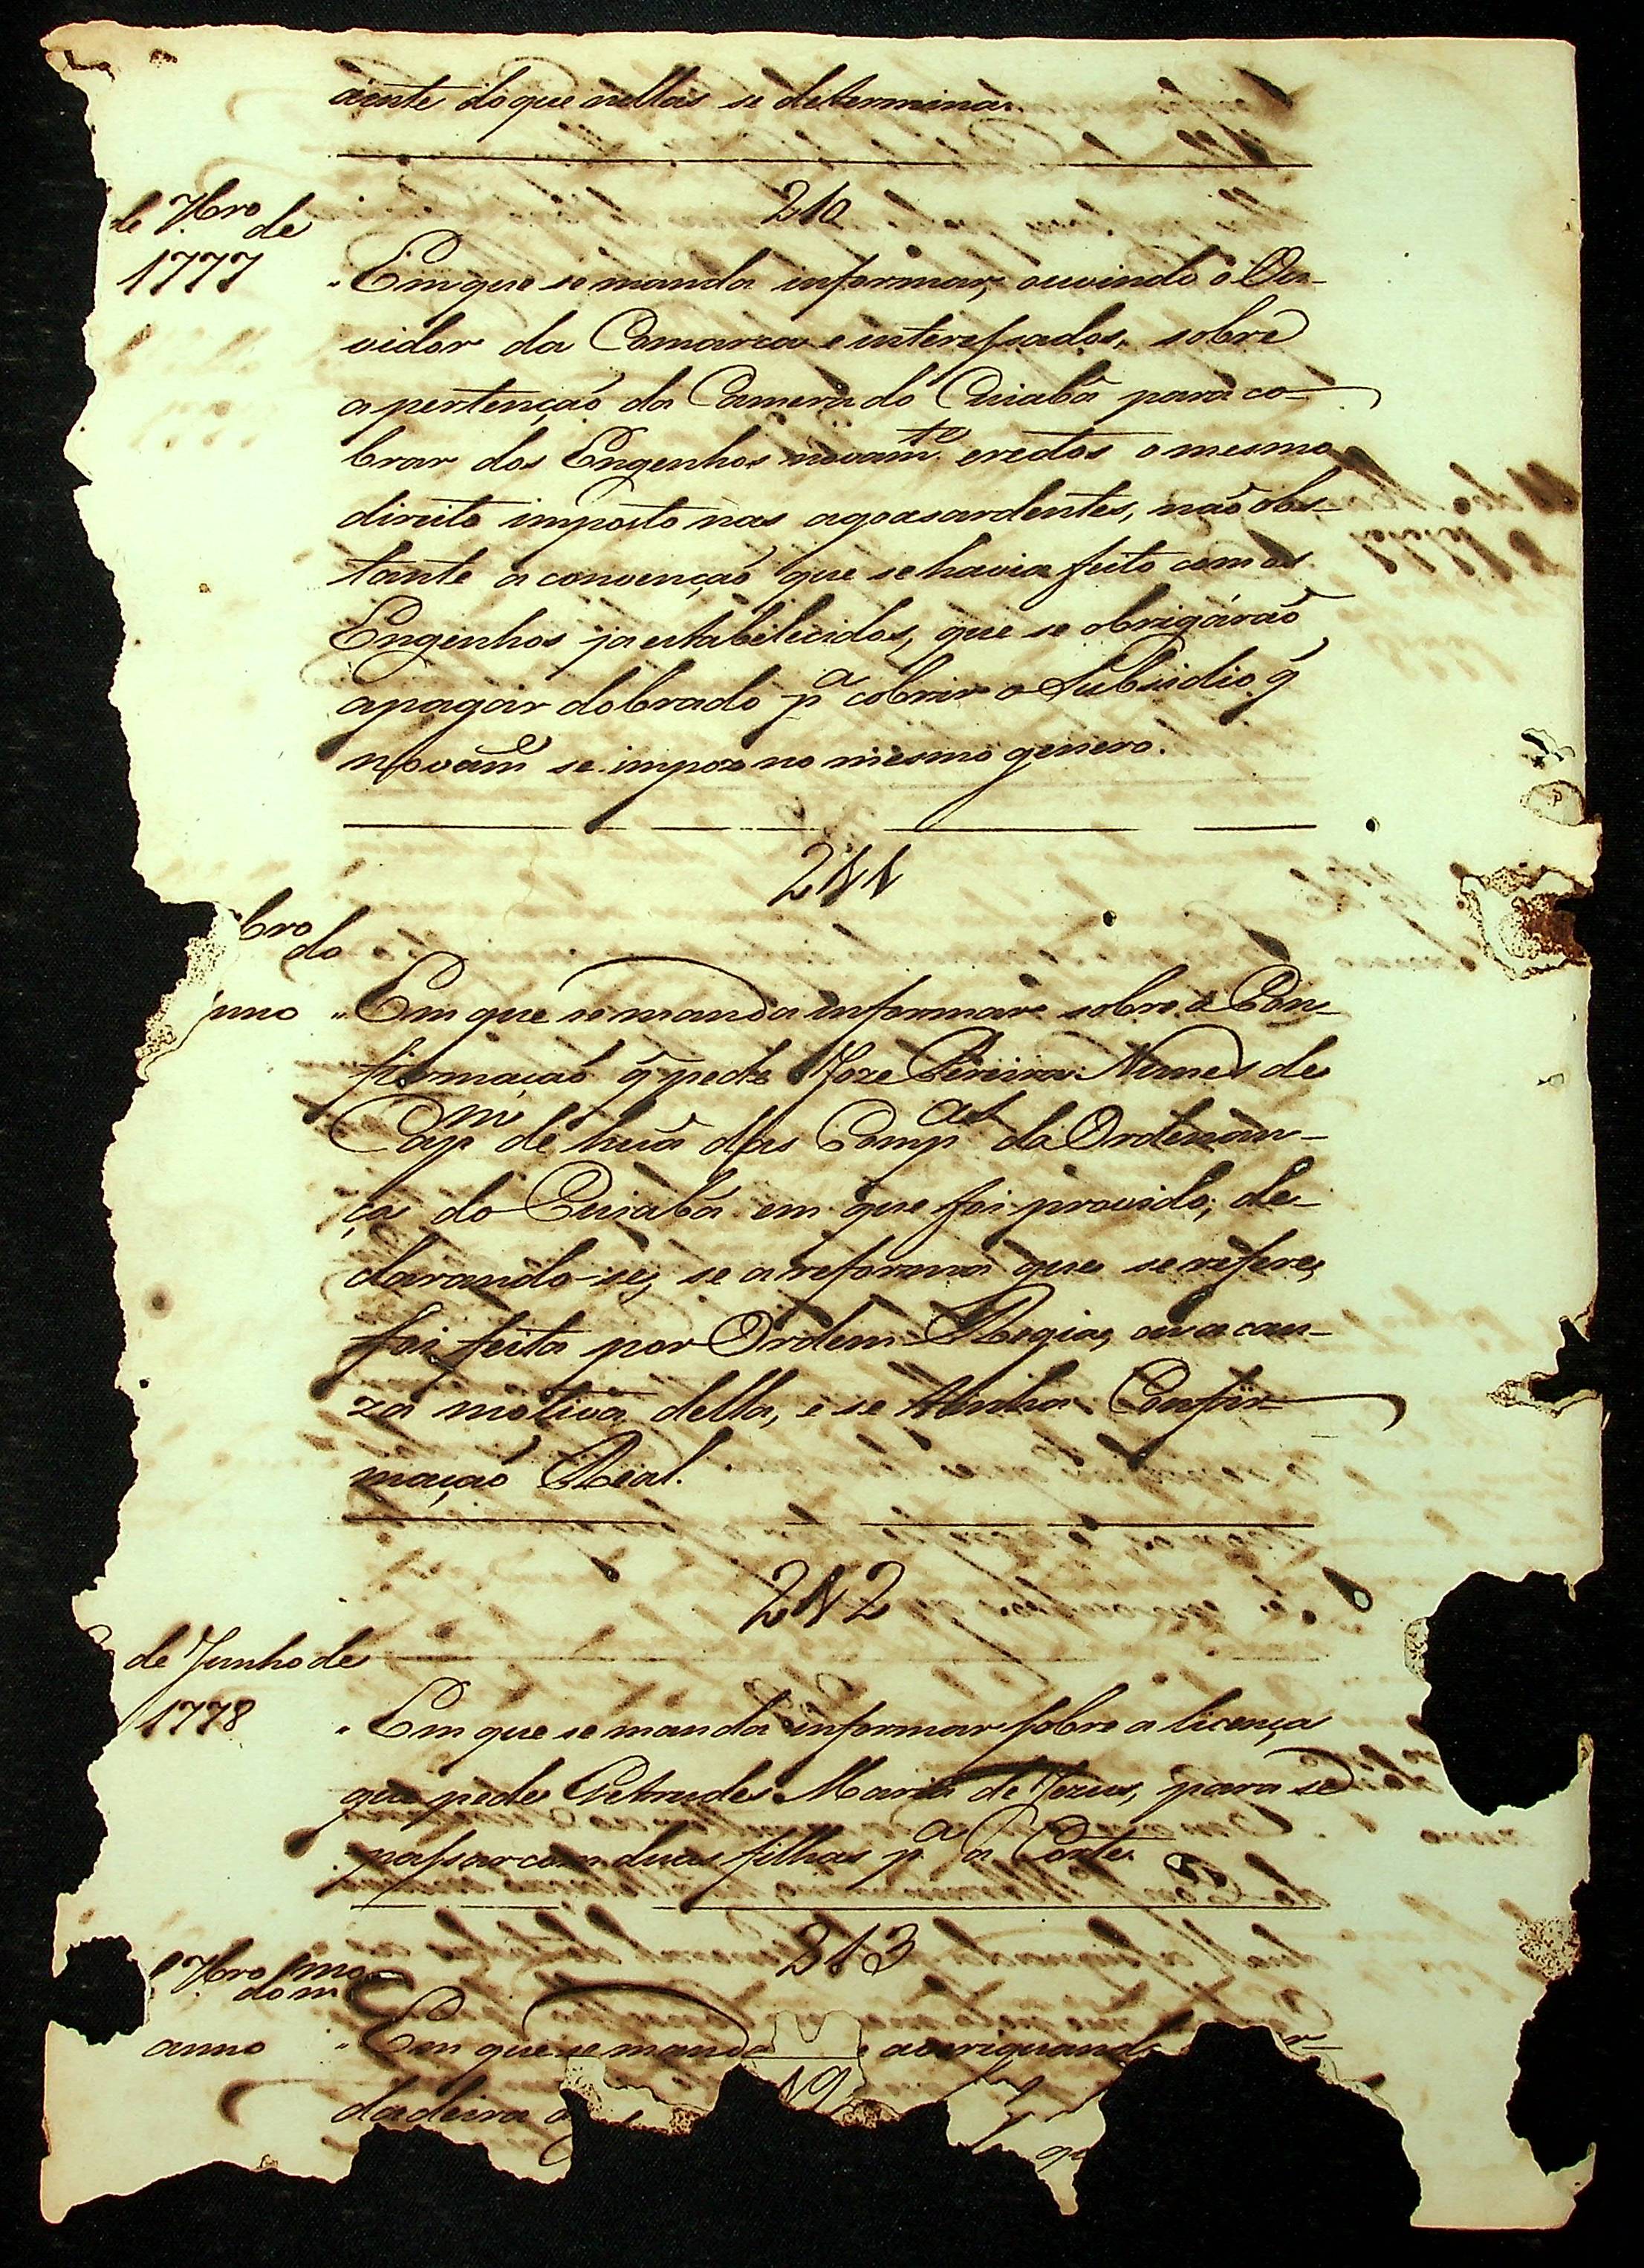 aiente do que nellas se determina.
210
de 7bro de
1777
Em que se manda informar, ouvindo o Ou-
vidor da Comarca e interessados, sobre
a pertenção da Camera do Cuiabá para co-
brar dos Engenhos novam.te eretos o mesmo
direito imposto nas agoasardentes, não obs-
tante a convenção que se havia feito com os
Engenhos ja estabelecidos, que se obrigárão
apagar dobrado p.a cobrir o Subsidio q̃
novam.e se impoz no mesmo genero.
211
bro do
nno
Em que se manda informar sobre a Con-
firmação q̃ pede Joze Pereira Nunes de
Cap.m de huã das Comp.as da Ordenan-
ça do Cuiabá em que foi provido, de-
clarando-se, se a reforma que se refere,
foi feita por Ordem Regia, ou a cau-
za motiva della, e se tinha Confir-
mação Real.
212
de Junho de
1778
Em que se manda informar sobre a licença
que pede Getrudes Maria de Jezus, para se
passar com duas filhas p.a a Corte.
213
7bro do m.mo
anno
Em que se manda averiguand
dadeira